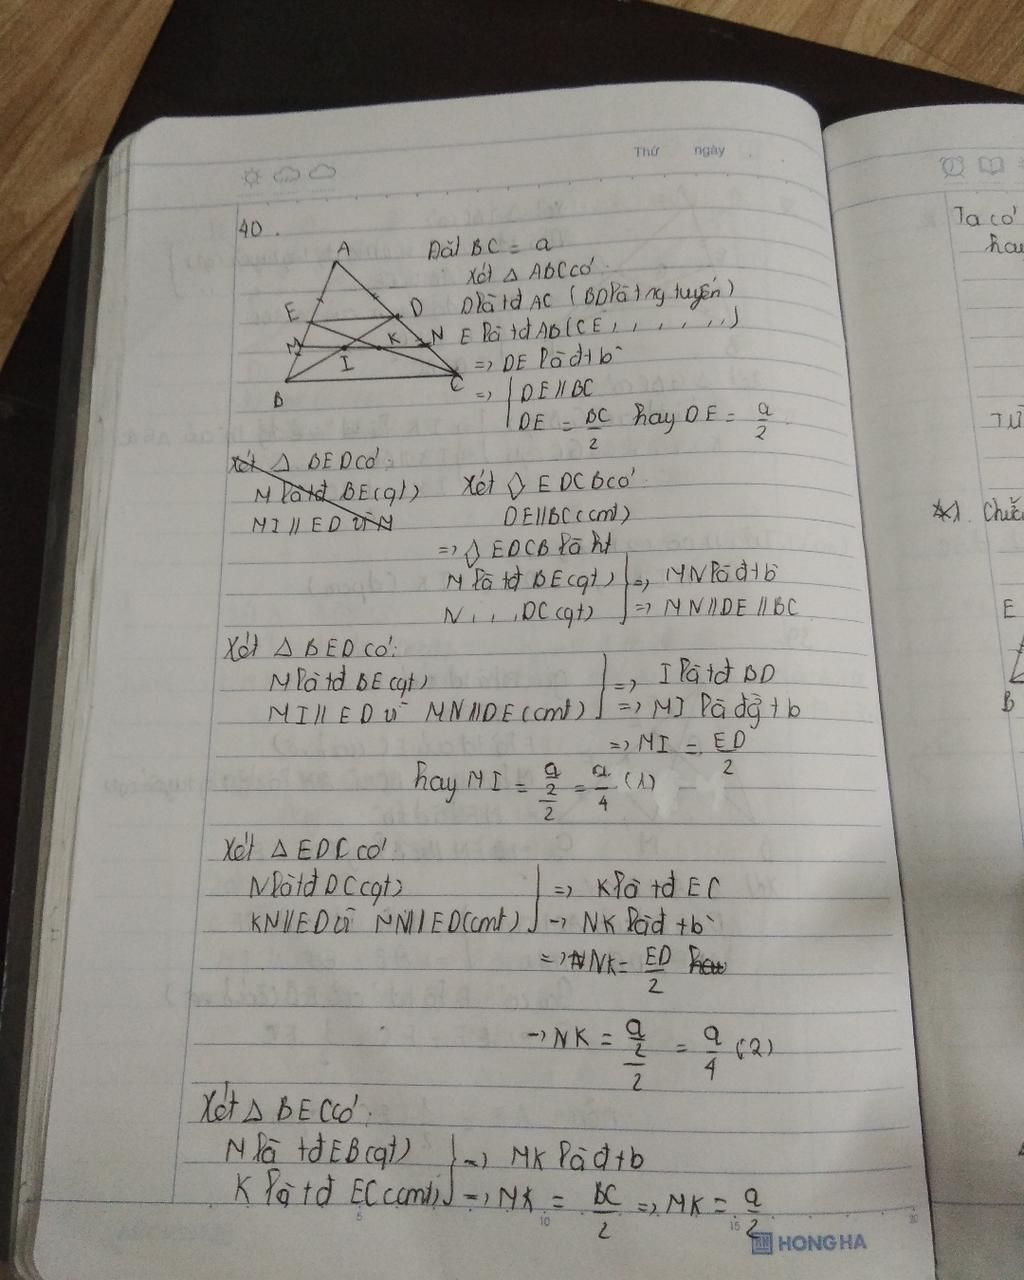 Thứ ngày
40.
A
E
D
M
I
K
N
B
C
Đặt BC = a
Xét Δ ABC có:
D là tđ AC (BD là tng tuyến)
E là tđ AB (CE , , , , , ,)
=> DE là đtb
=> DE // BC
DE = BC/2 hay DE = a/2
Xét Δ BED có:
M là tđ BE (gt)
MI // ED vì M
Xét ◊ EDCB có:
DE // BC (cmt)
=> ◊ EDCB là ht
M là tđ BE (gt) => MN là đtb
N , , , DC (gt) => MN // DE // BC
Xét Δ BED có:
M là tđ BE (gt) => I là tđ BD
MI // ED vì MN // DE (cmt) => MI là đg tb
=> MI = ED/2
hay MI = a/2/2 = a/4 (1)
Xét Δ EDC có:
N là tđ DC (gt) => K là tđ EC
KN // ED vì MN // ED (cmt) -> NK là đtb
=> NK = ED/2 hay
-> NK = a/2/2 = a/4 (2)
Xét Δ BEC có:
M là tđ EB (gt) => MK là đtb
K là tđ EC (cmt) => MK = BC/2 => MK = a/2
5 10 15 20
HONG HA
Ta có
hay
Từ
E
B